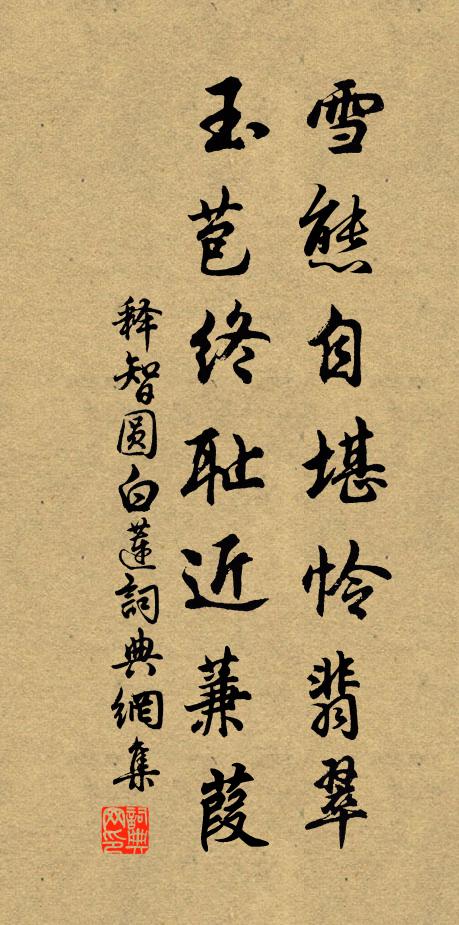 雪態自堪怜翡翠
玉苞終耻近蒹葭
释智圆白蓮詞典網集
詞典网印